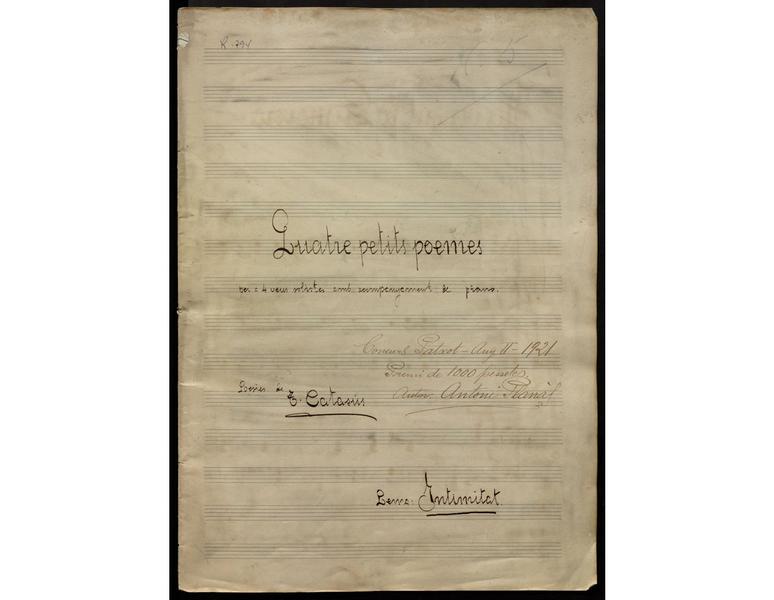 R. 794
15
Quatre petits poemes
per a 4 veus solistes amb acompanyament de piano.
Concurs Patxot - Any II - 1921
Premi de 1000 pesetas
Autor: Antoni Planàs
Poesies de
T. Catasús
Lema: Intimitat